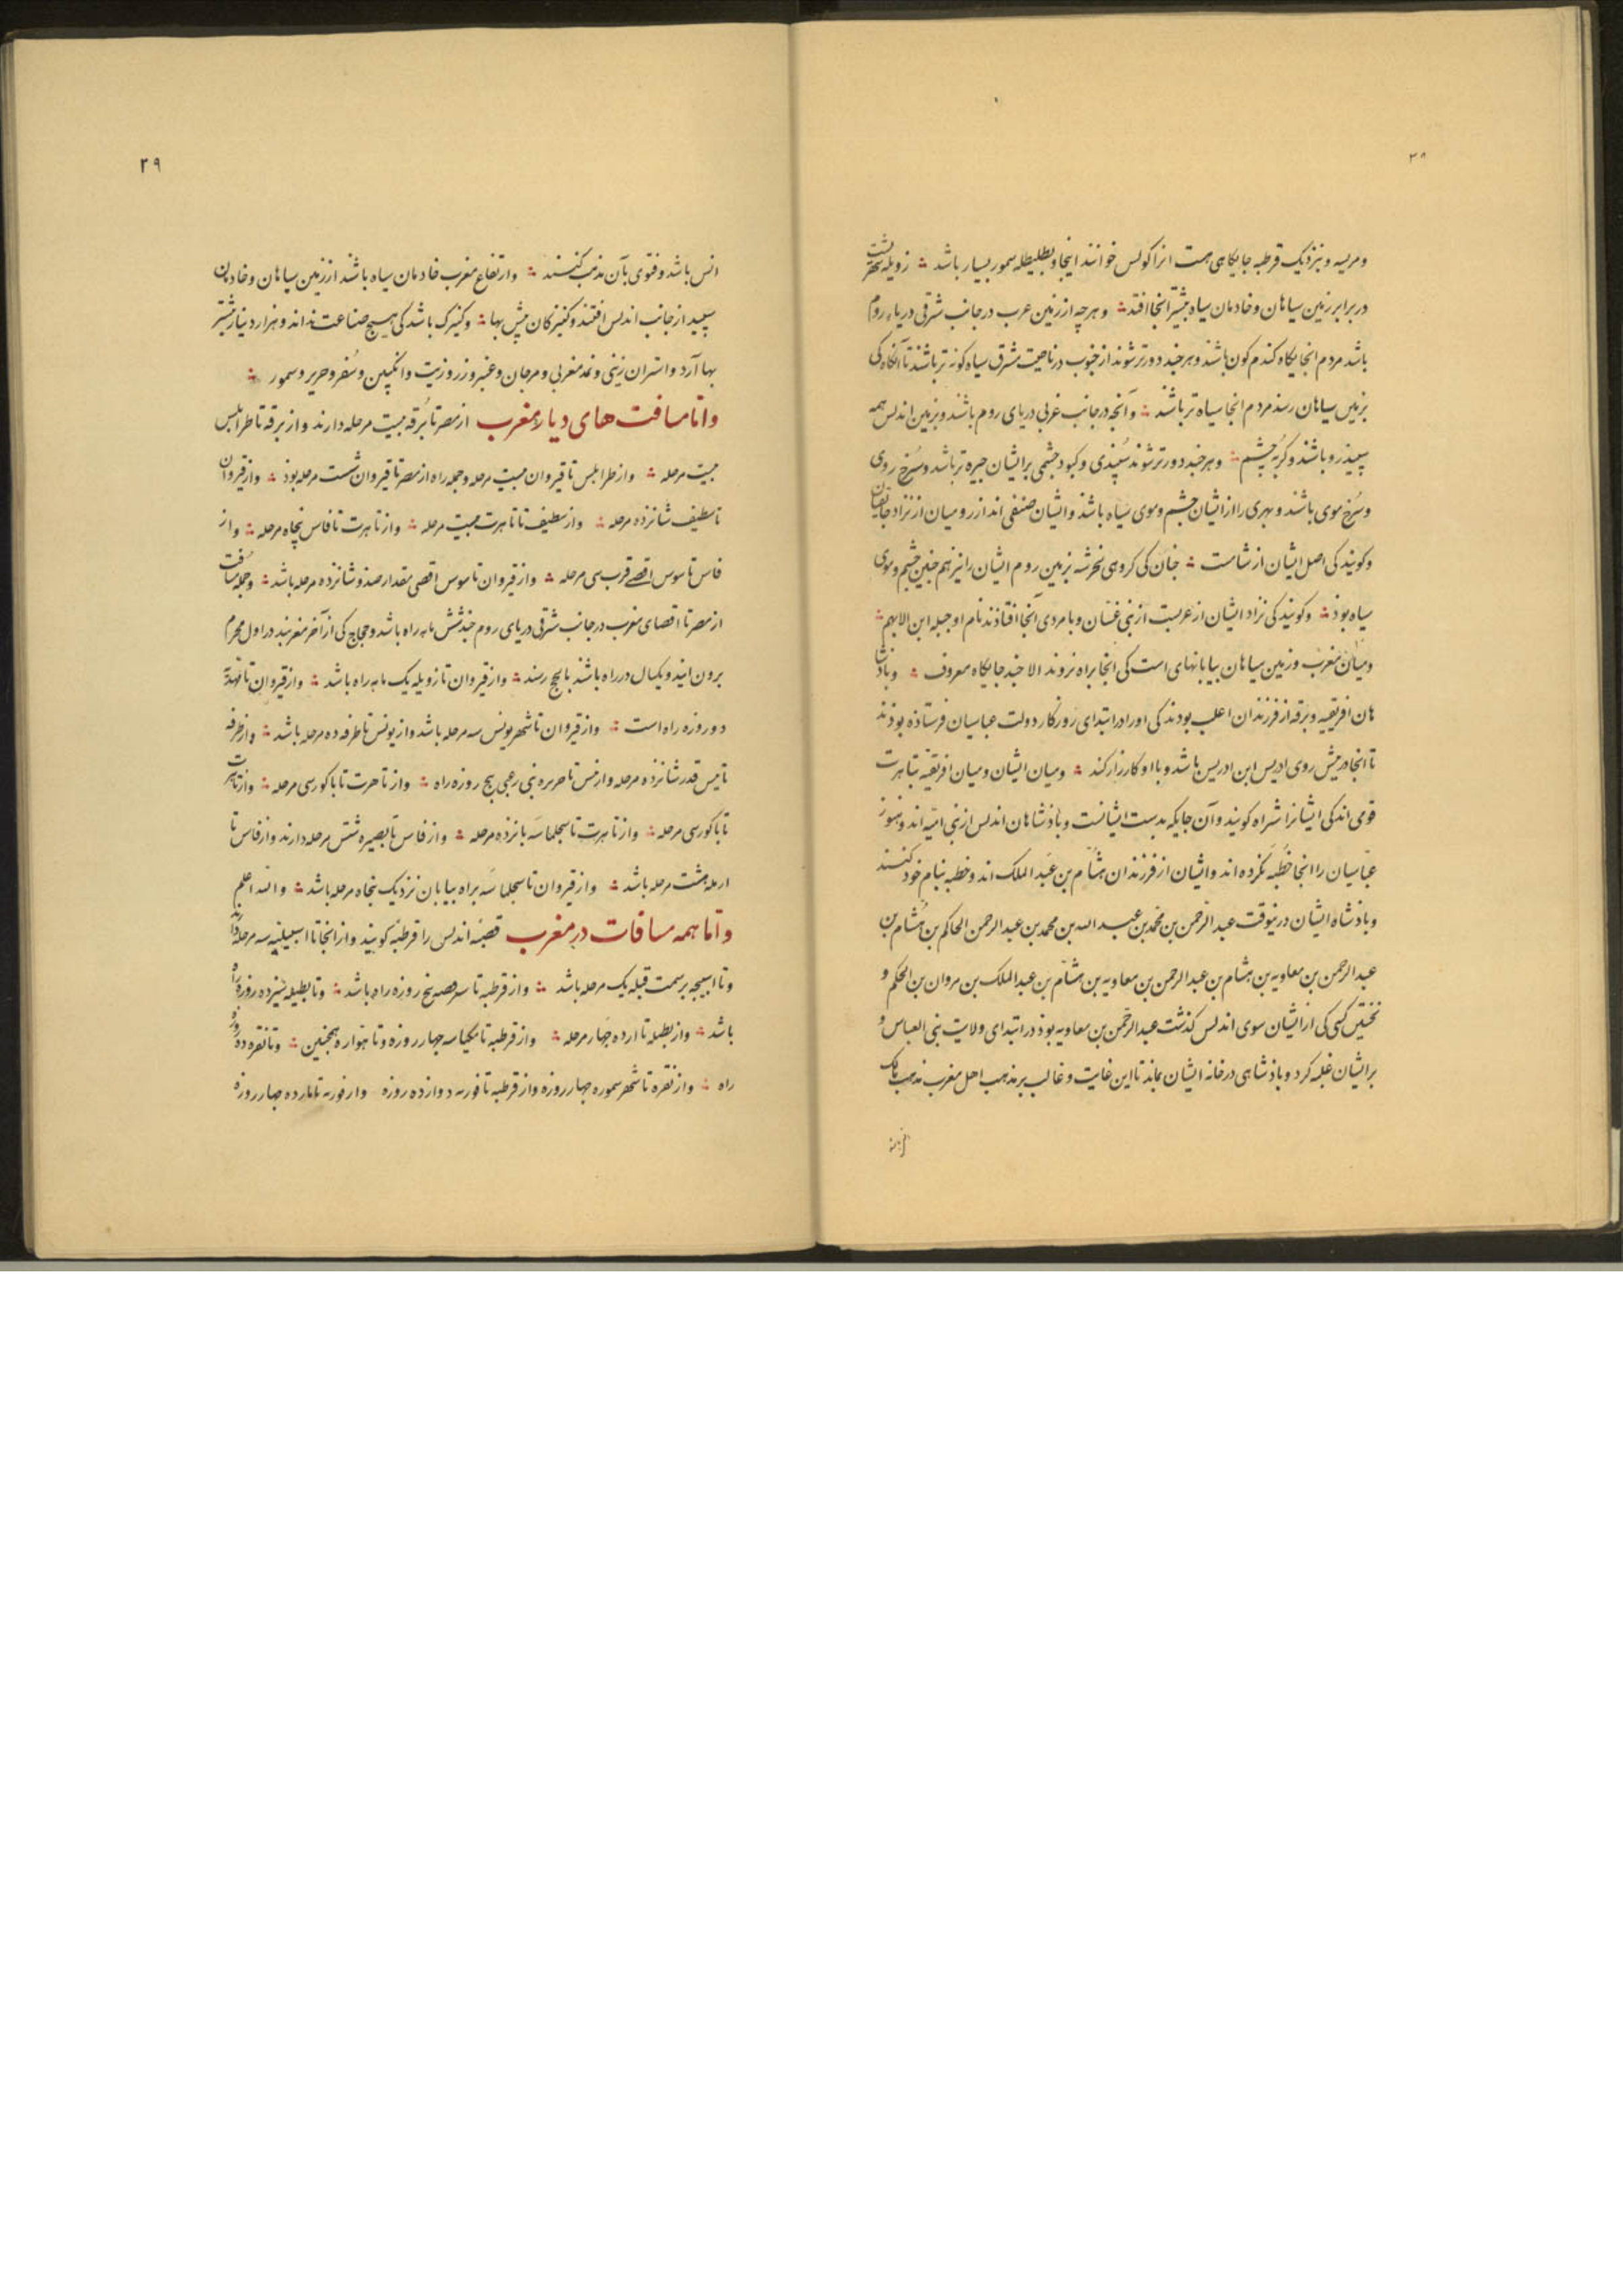 ۳۸
ومریه و بنزدیک قرطبه جایکاهی هست انرا کولس خوانند اینجا و بطلیطله سمور بسیار باشد ∴ زویله
در برابر زمین سیاهان و خادمان سیاه بیشتر انجا افتد ∴ و هرچه از زمین عرب در جانب شرقی دریاء روم
باشد مردم انجایکاه کندم کون باشند و هرچند دورتر شوند از جنوب در ناحیت مشرق سیاه کونه تر باشند تا آنکاه کی
بزمین سیاهان رسد مردم انجا سیاه تر باشد ∴ و آنچه در جانب غربی دریای روم باشند و بزمین اندلس همه
سپید رو باشند و کربه چشم ∴ و هرچند دورتر شوند سپیدی و کبود چشمی برایشان چیره تر باشد و سرخ روی
و سرخ موی باشند و بهری را از ایشان چشم و موی سیاه باشد و ایشان صنفی اند از رومیان از نژاد
و کویند کی اصل ایشان از شامست ∴ چنان کی کروهی نخرشنه بزمین روم ایشان را نیز هم چنین چشم و موی
سیاه بوذ ∴ و کویند کی نژاد ایشان از عربست از بنی غسان و با مردی آنجا افتاذند نام او جبله ابن الایهم ∴
و میان مغرب و زمین سیاهان بیابانهای است کی انجا براه نروند الا چند جایکاه معروف ∴ و باذشا
هان افریقیه و برقه از فرزندان اغلب بودند کی اورا در ابتدای روزکار دولت عباسیان فرستاذه بوذند
تا انجا در پیش روی ادریس ابن ادریس باشد و با او کارزار کند ∴ و میان ایشان و میان افریقیه بتاهرت
قومی اند کی ایشانرا شراه کویند و آن جایکه بدست ایشانست و باذشاهان اندلس از بنی امیه اند و هنوز
عباسیان را انجا خطبه نکرده اند و ایشان از فرزندان هشام بن عبد الملک اند و خطبه بنام خود کنند
و باذشاه ایشان درینوقت عبد الرحمن بن محمد بن عبد الله بن محمد بن عبد الرحمن الحاکم بن هشام بن
عبد الرحمن بن معاویه بن هشام بن عبد الرحمن بن معاویه بن هشام بن عبد الملک بن مروان بن الحکم و
نخستین کسی کی از ایشان سوی اندلس کذشت عبد الرحمن بن معاویه بوذ در ابتدای ولایت بنی العباس و
برایشان غلبه کرد و باذشاهی در خانه ایشان بماند تا این غایت و غالب بر مذهب اهل مغرب مذهب مالک
۲۹
انس باشد و فتوی بآن مذهب کنند ∴ و ارتفاع مغرب خادمان سیاه باشند از زمین سیاهان و خادمان
سپید از جانب اندلس افتند و کنیزکان بیش بها ∴ و کنیزک باشد کی هیچ صناعت نداند و هزار دینار بیشتر
بها آرد و استران زینی و نمد مغربی و مرجان و عنبر و زر و زیت و انکبین و سفر و حریر و سمور ∴
و اما مسافت های دیار مغرب از مصر تا برقه بیست مرحله دارند و از برقه تا طرابلس
بیست مرحله ∴ و از طرابلس تا قیروان بیست مرحله و جمله راه از مصر تا قیروان شست مرحله بوذ ∴ و از قیروان
تا سطیف شانزده مرحله ∴ و از سطیف تا تاهرت بیست مرحله ∴ و از تاهرت تا فاس پنجاه مرحله ∴ و از
فاس تا سوس اقصی قرب سی مرحله ∴ و از قیروان تا سوس اقصی مقدار صذ و شانزده مرحله باشد ∴ و جمله مسافت
از مصر تا اقصای مغرب در جانب شرقی دریای روم چند شش ماهه راه باشد و حجاج کی از آخر مغرب در اول محرم
برون ایند و یکسال در راه باشند تا بحج رسند ∴ و از قیروان تا زویله یک ماهه راه باشد ∴ و از قیروان تا مهدیه
دو روزه راه است ∴ و از قیروان تا شهر یونس سه مرحله باشد و از یونس تا طرفه ده مرحله باشد ∴ و از طرفه
تا تنس قدر شانزده مرحله و از تنس تا جزیره بنی رعی پنج روزه راه ∴ و از تاهرت تا باکور سی مرحله ∴ و از تاهرت
تا باکور سی مرحله ∴ و از تاهرت تا سجلماسه پانزده مرحله ∴ و از فاس تا بصیره شش مرحله دارند و از فاس تا
ازیله هشت مرحله باشد ∴ و از قیروان تا سجلماسه براه بیابان نزدیک پنجاه مرحله باشد ∴ و الله اعلم
و اما همه مسافات در مغرب قصبه اندلس را قرطبه کویند و از انجا تا اسبیلیه سه مرحله
و تا اسیجه بر سمت قبله یک مرحله باشد ∴ و از قرطبه تا سرقصه پنج روزه راه باشد ∴ و تا بطیله سیزده روزه
باشد ∴ و از بطیله تا لرده چهار مرحله ∴ و از قرطبه تا مکناسه چهار روزه و تا هواره همچنین ∴ و تا نقره ده
راه ∴ و از نقره تا شهر سموره چهار روزه و از قرطبه تا قوریه دوازده روزه و از قوریه تا مارده چهار روزه